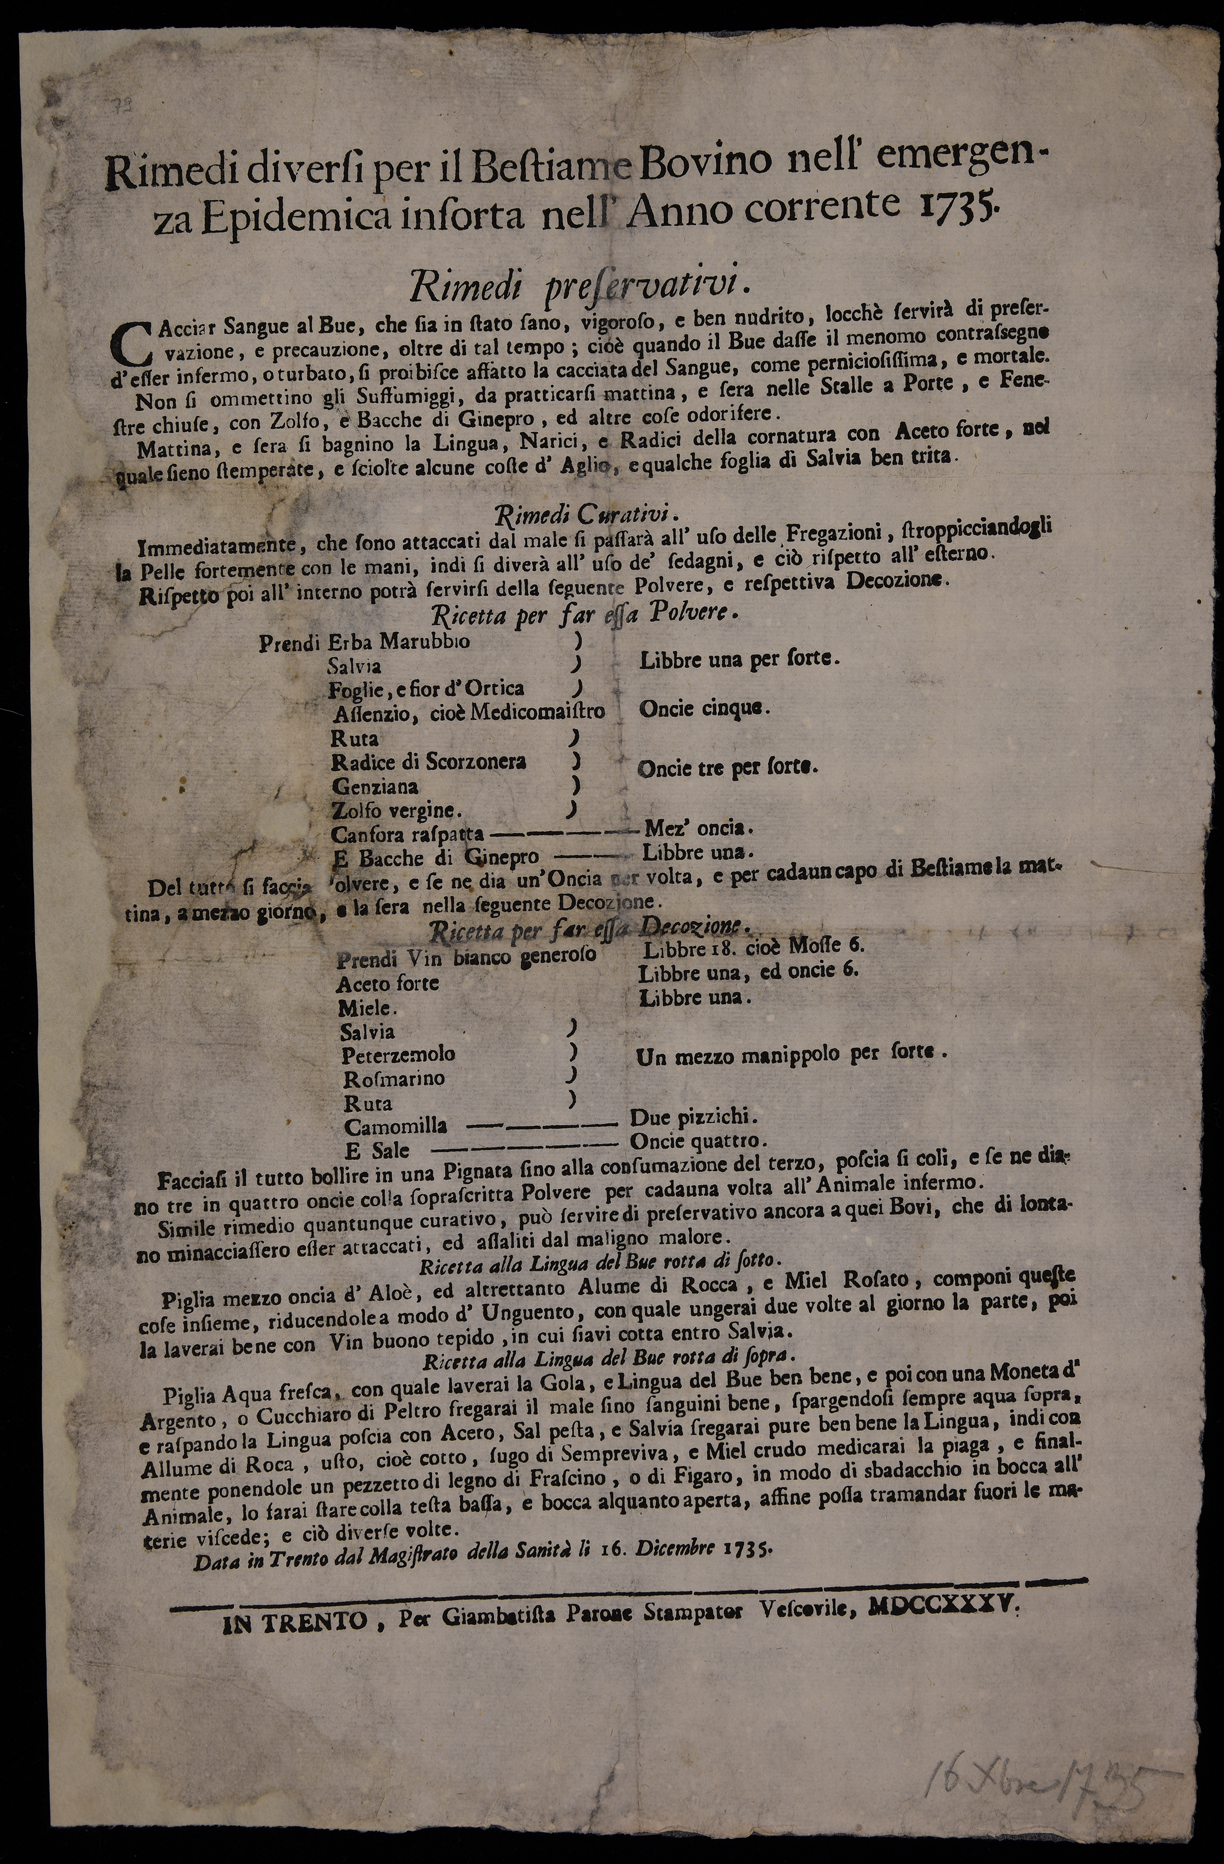 79
Rimedi diverſi per il Beſtiame Bovino nell' emergen-
za Epidemica inſorta nell' Anno corrente 1735.
Rimedi preſervativi.
CAcciar Sangue al Bue, che ſia in ſtato ſano, vigoroſo, e ben nudrito, locchè ſervirà di preſer-
vazione, e precauzione, oltre di tal tempo; cioè quando il Bue daſſe il menomo contraſsegno
d'eſſer infermo, o turbato, ſi proibiſce affatto la cacciata del Sangue, come pernicioſiſſima, e mortale.
Non ſi ommettino gli Suffumiggi, da pratticarſi mattina, e ſera nelle Stalle a Porte, e Fene-
ſtre chiuſe, con Zolfo, e Bacche di Ginepro, ed altre coſe odorifere.
Mattina, e ſera ſi bagnino la Lingua, Narici, e Radici della cornatura con Aceto forte, nel
quale ſieno ſtemperate, e ſciolte alcune coſte d' Aglio, e qualche foglia di Salvia ben trita.
Rimedi Curativi.
Immediatamente, che ſono attaccati dal male ſi paſſarà all' uſo delle Fregazioni, ſtroppicciandogli
la Pelle fortemente con le mani, indi ſi diverà all' uſo de' ſedagni, e ciò riſpetto all' eſterno.
Riſpetto poi all' interno potrà ſervirſi della ſeguente Polvere, e reſpettiva Decozione.
Ricetta per far eſſa Polvere.
Prendi Erba Marubbio )
Salvia ) Libbre una per ſorte.
Foglie, e fior d'Ortica )
Aſſenzio, cioè Medicomaiſtro Oncie cinque.
Ruta )
Radice di Scorzonera ) Oncie tre per ſorte.
Genziana )
Zolfo vergine. )
Canfora raſpatta —————— Mez' oncia.
E Bacche di Ginepro ——— Libbre una.
Del tutto ſi faccia Polvere, e ſe ne dia un'Oncia per volta, e per cadaun capo di Beſtiame la mat-
tina, a mezzo giorno, e la ſera nella ſeguente Decozione.
Ricetta per far eſſa Decozione.
Prendi Vin bianco generoſo Libbre 18. cioè Moſſe 6.
Aceto forte Libbre una, ed oncie 6.
Miele. Libbre una.
Salvia )
Peterzemolo ) Un mezzo manippolo per ſorte.
Roſmarino )
Ruta )
Camomilla —————— Due pizzichi.
E Sale ———————— Oncie quattro.
Facciaſi il tutto bollire in una Pignata ſino alla conſumazione del terzo, poſcia ſi coli, e ſe ne dia-
no tre in quattro oncie colla ſopraſcritta Polvere per cadauna volta all' Animale infermo.
Simile rimedio quantunque curativo, può ſervire di preſervativo ancora a quei Bovi, che di lonta-
no minacciaſſero eſſer attaccati, ed aſſaliti dal maligno malore.
Ricetta alla Lingua del Bue rotta di ſotto.
Piglia mezzo oncia d' Aloè, ed altrettanto Alume di Rocca, e Miel Roſato, componi queſte
coſe inſieme, riducendole a modo d' Unguento, con quale ungerai due volte al giorno la parte, poi
la laverai bene con Vin buono tepido, in cui ſiavi cotta entro Salvia.
Ricetta alla Lingua del Bue rotta di ſopra.
Piglia Aqua freſca, con quale laverai la Gola, e Lingua del Bue ben bene, e poi con una Moneta d'
Argento, o Cucchiaro di Peltro fregarai il male ſino ſanguini bene, ſpargendoſi ſempre aqua ſopra,
e raſpando la Lingua poſcia con Aceto, Sal peſta, e Salvia fregarai pure ben bene la Lingua, indi con
Allume di Roca, uſto, cioè cotto, ſugo di Sempreviva, e Miel crudo medicarai la piaga, e final-
mente ponendole un pezzetto di legno di Fraſcino, o di Figaro, in modo di sbadacchio in bocca all'
Animale, lo farai ſtare colla teſta baſſa, e bocca alquanto aperta, affine poſſa tramandar fuori le ma-
terie viſcede; e ciò diverſe volte.
Data in Trento dal Magiſtrato della Sanità li 16. Dicembre 1735.
IN TRENTO, Per Giambatiſta Parone Stampator Veſcovile, MDCCXXXV.
16 Xbre 1735